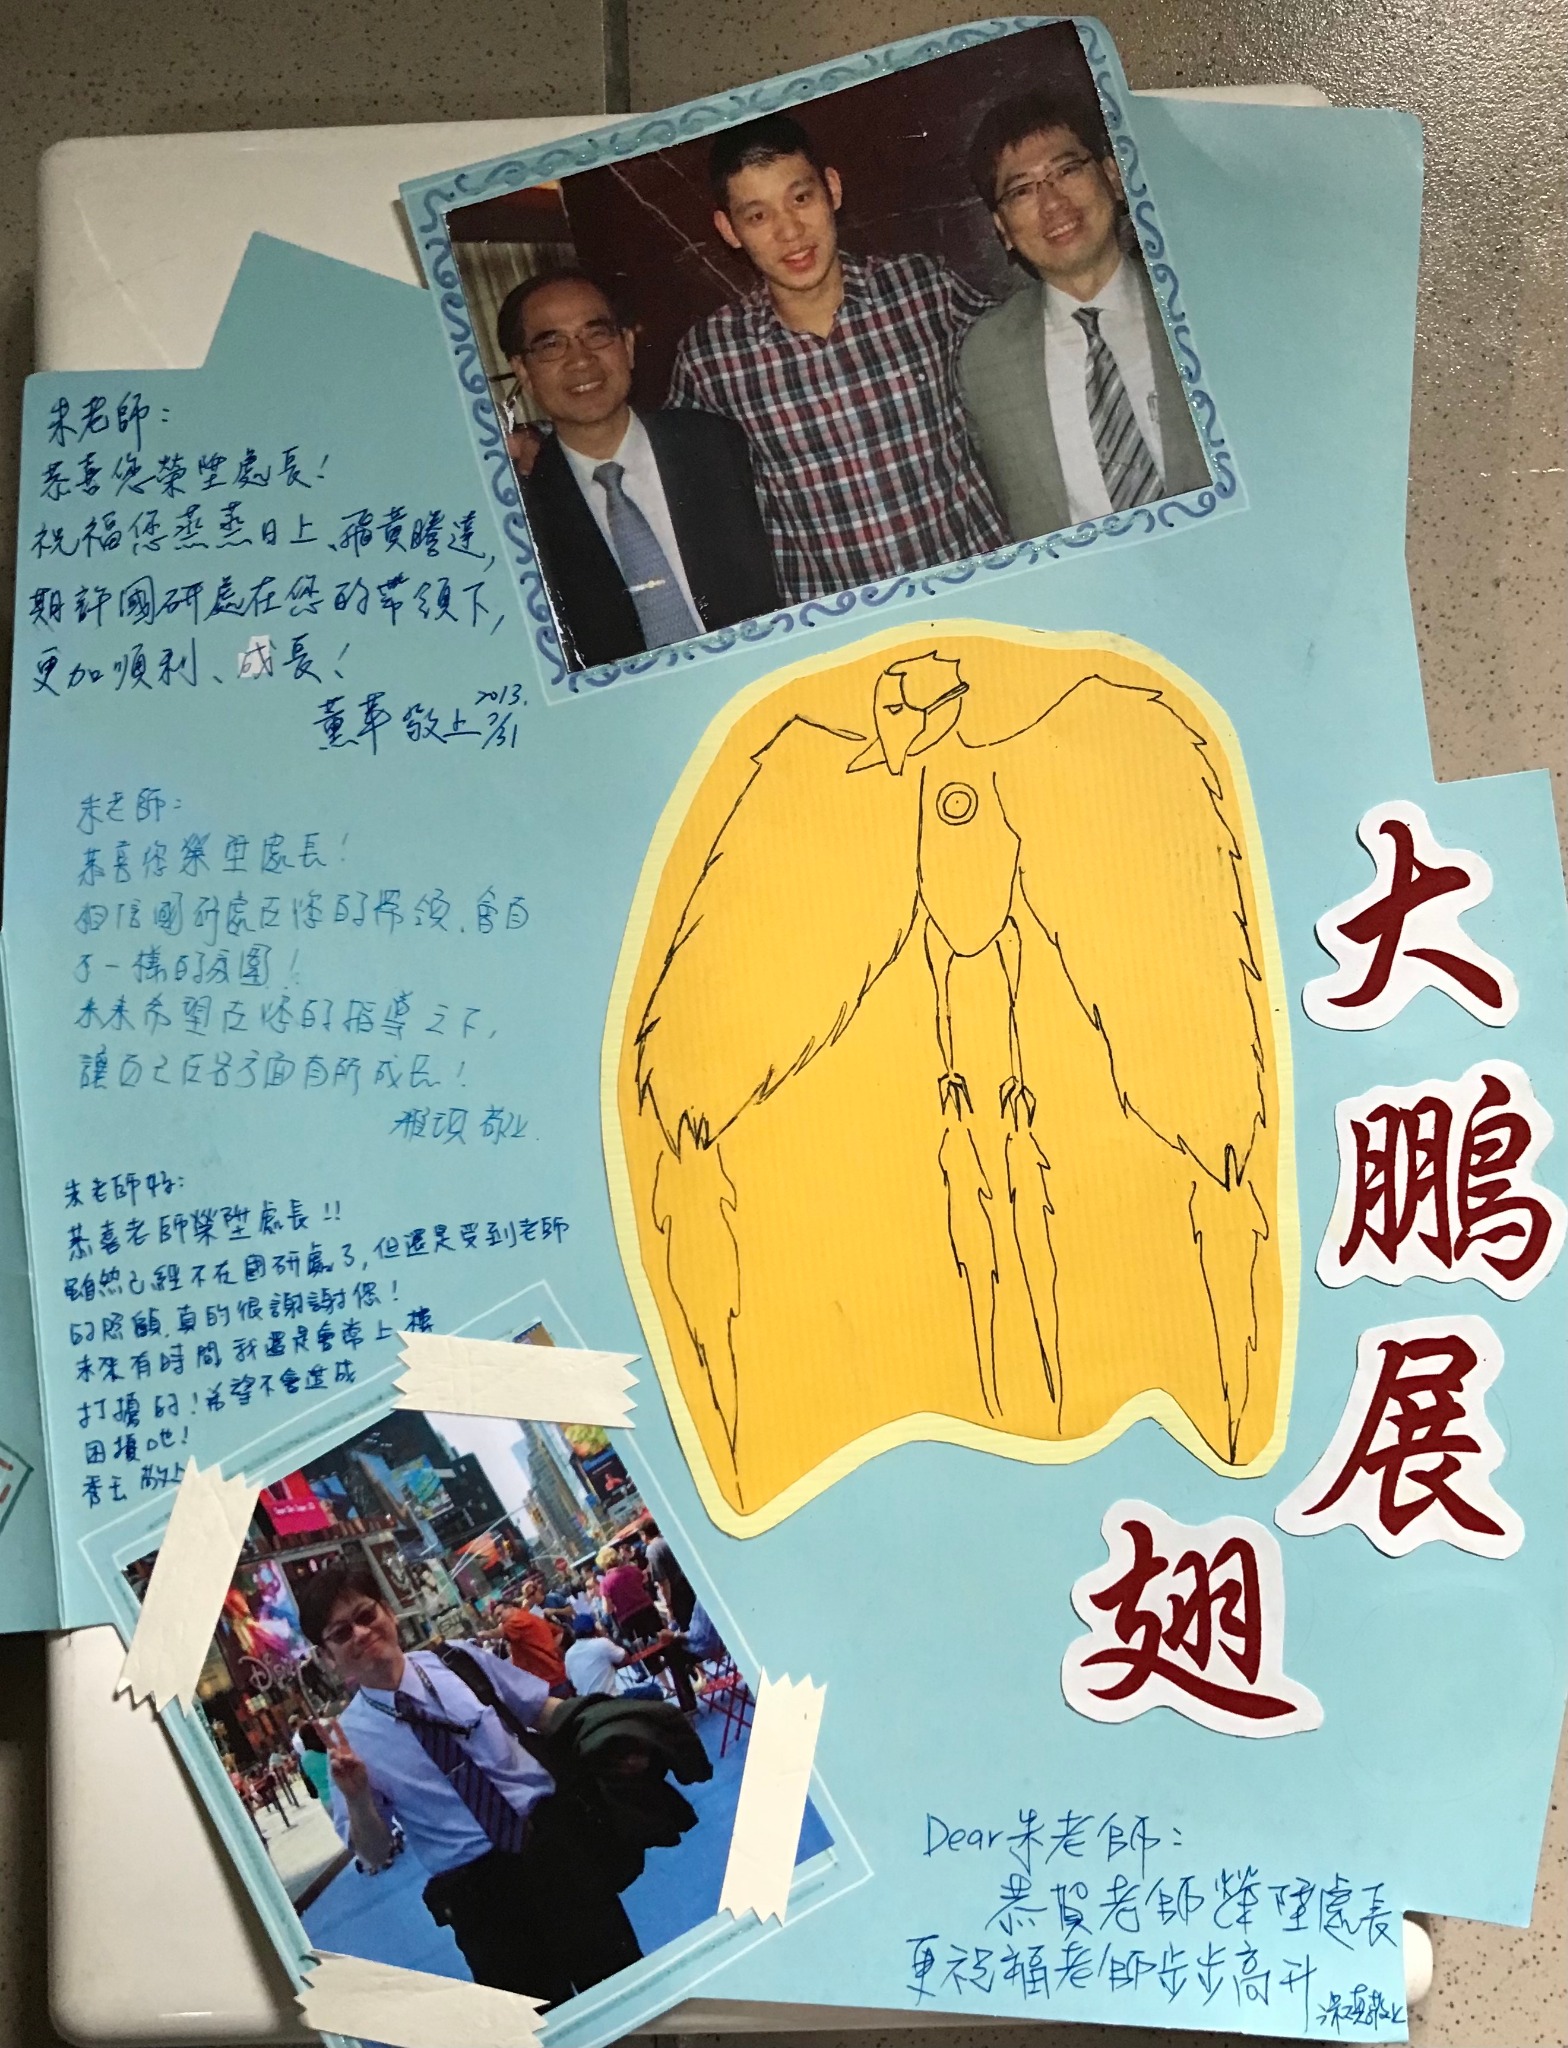 朱老師：
恭喜您榮陞處長！
祝福您蒸蒸日上、飛黃騰達，
期許國研處在您的帶領下，
更加順利、成長！
薰 敬上 2013.
7/31
朱老師：
恭喜您榮陞處長！
相信國研處在您的帶領，會有
不一樣的氛圍！
未來希望在您的指導之下，
讓自己在各方面有所成長！
敬上
朱老師好：
恭喜老師榮陞處長！！
雖然已經不在國研處了，但還是受到老師
的照顧，真的很謝謝您！
未來有時間我還是會常上樓
打擾的！希望不會造成
困擾吔！
秀玉 敬上
大
鵬
展
翅
Disney
Dear 朱老師：
恭賀老師榮陞處長
更祝福老師步步高升
淑真敬上